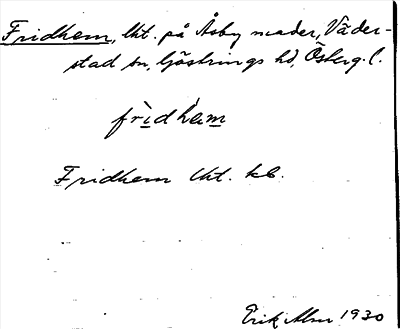 Fridhem, lht. på Åsby marker, Väder-
stad sn, Göstrings hd, Östergl.
frìdhèm
Fridhem lht. kb.
Erik Alm 1930